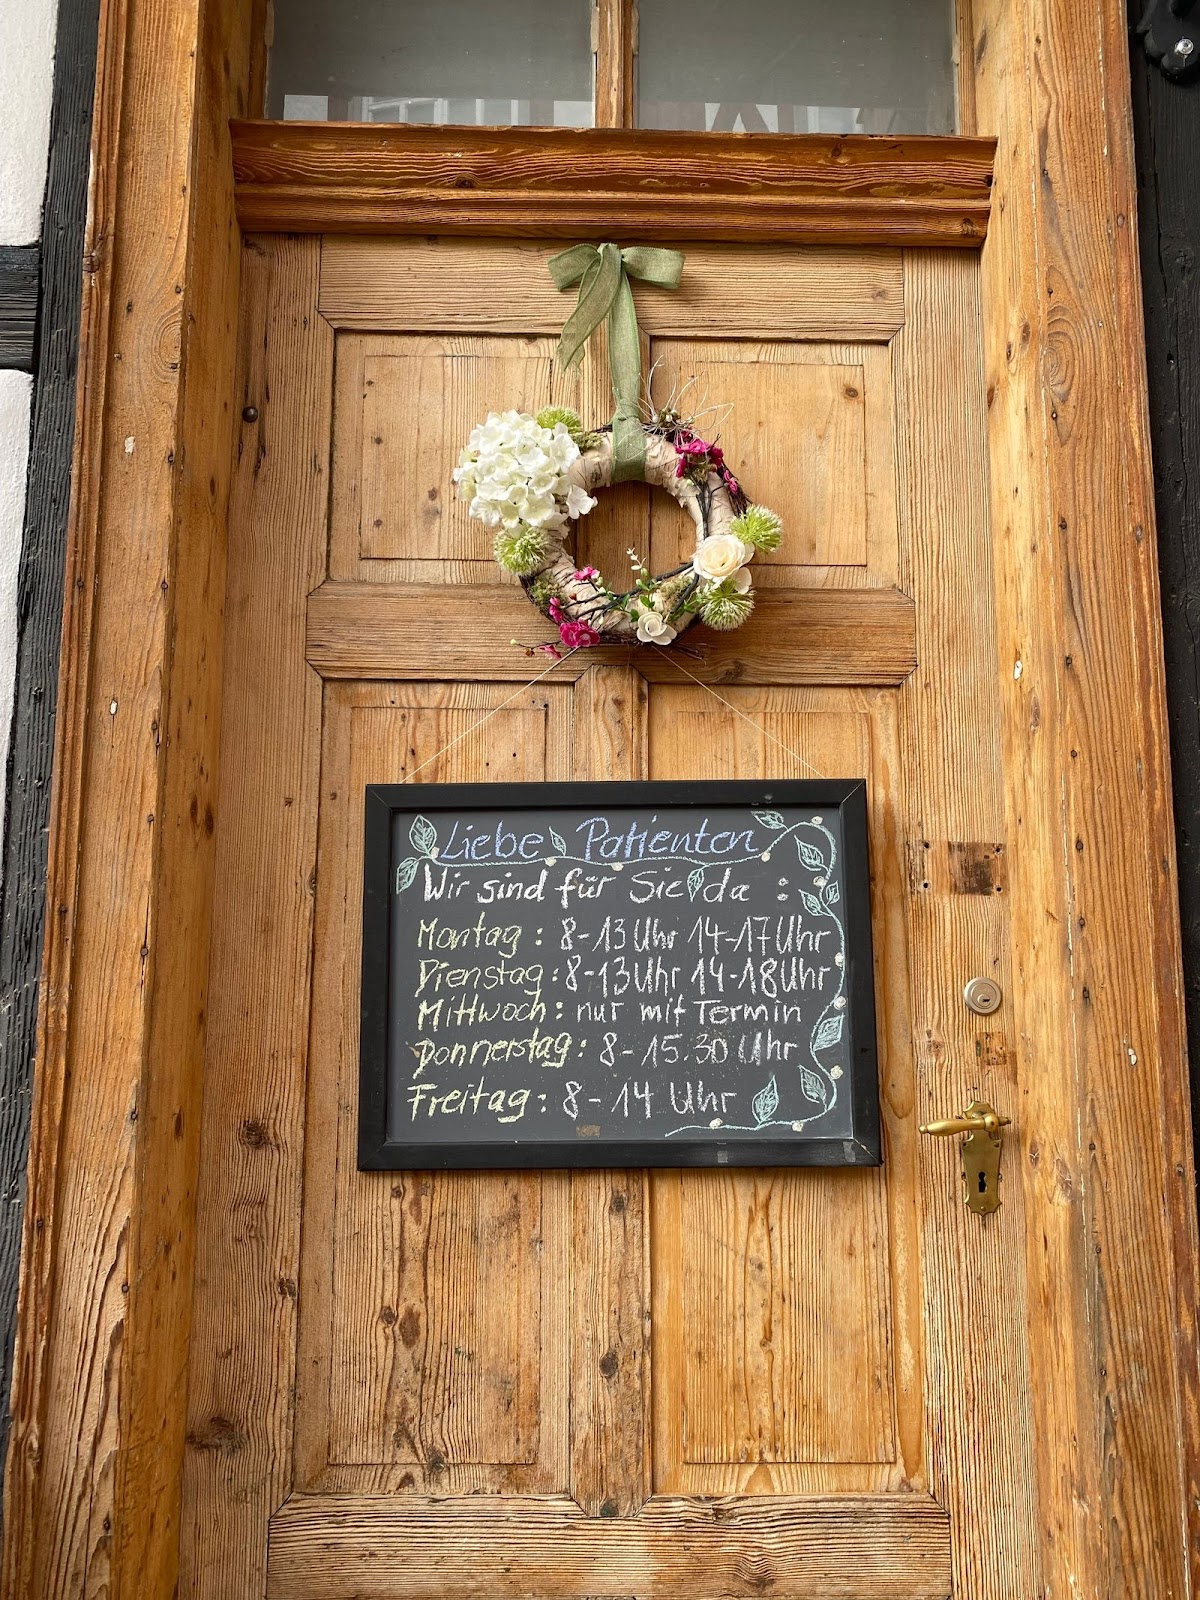 Liebe Patienten
Wir sind für Sie da :
Montag : 8-13 Uhr 14-17 Uhr
Dienstag : 8-13 Uhr 14-18 Uhr
Mittwoch : nur mit Termin
Donnerstag : 8-15.30 Uhr
Freitag : 8-14 Uhr